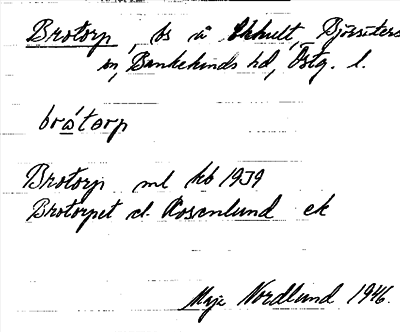 Brotorp, bs å Ekhult, Björsäters
sn, Bankekinds hd, Östg. l.
brò̱tɔrp
Brotorp ml kb 1939
Brotorpet el. Rosenlund ek
Maje Nordlund 1946.